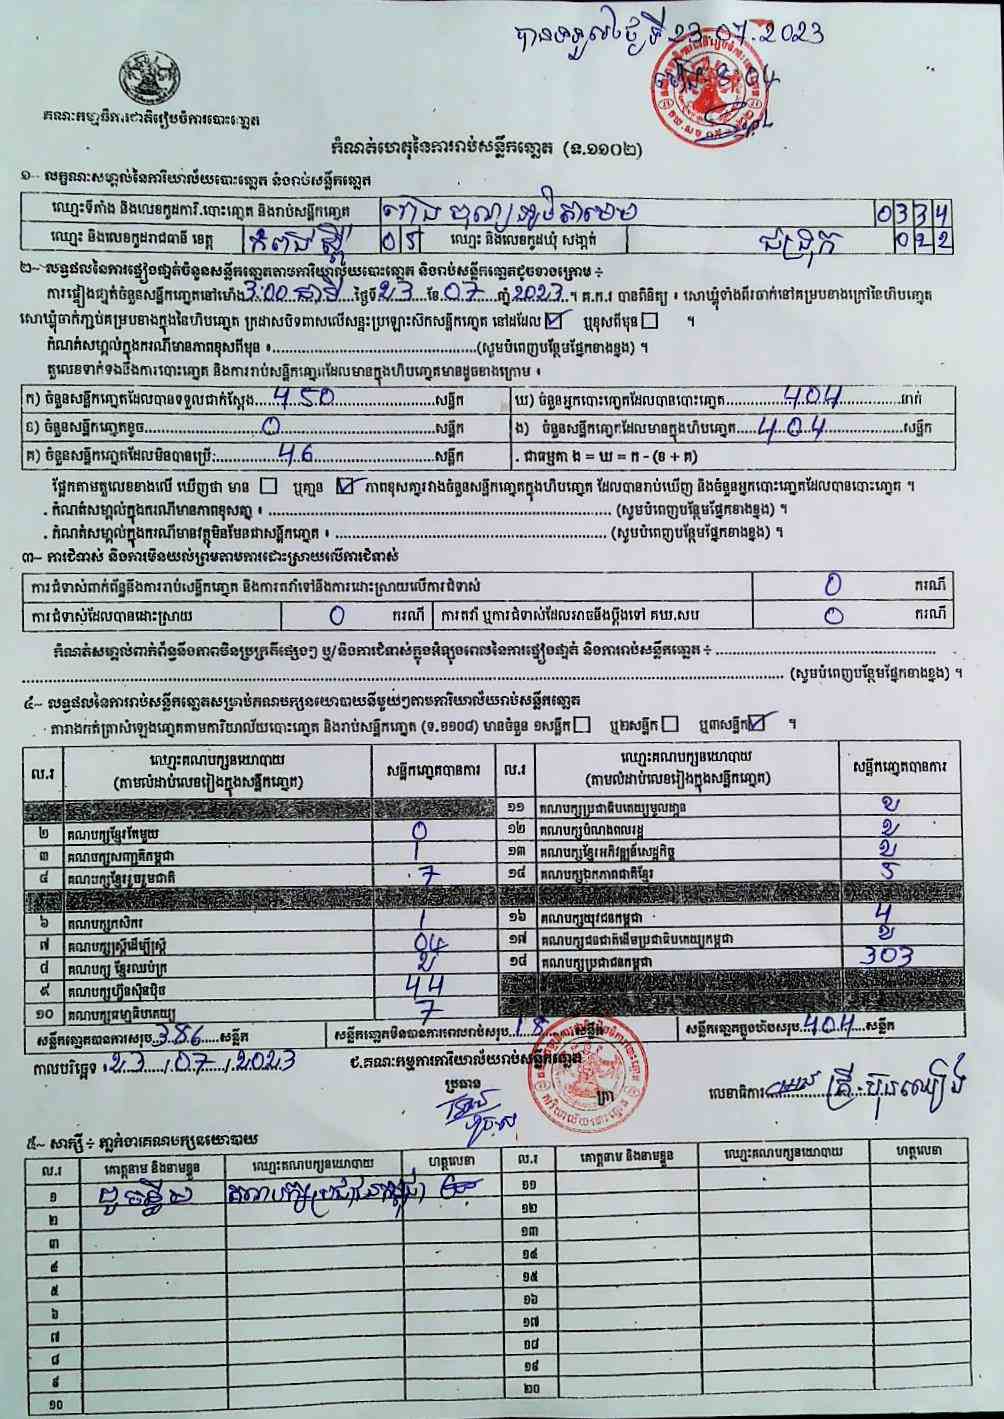 បានទទួលថ្ងៃទី 23.07.2023
ម៉ោង 8:04
គណៈកម្មាធិការជាតិរៀបចំការបោះឆ្នោត
កំណត់ហេតុនៃការរាប់សន្លឹកឆ្នោត (ទ.១១០២)
១~ លក្ខណៈសម្គាល់នៃការិយាល័យបោះឆ្នោត និងរាប់សន្លឹកឆ្នោត
ឈ្មោះទីតាំង និងលេខកូដការិ.បោះឆ្នោត និងរាប់សន្លឹកឆ្នោត 0334
ឈ្មោះ និងលេខកូដរាជធានី ខេត្ត កំពង់ស្ពឺ 05 ឈ្មោះ និងលេខកូដឃុំ សង្កាត់ 022
២~ លទ្ធផលនៃការផ្ទៀងផ្ទាត់ចំនួនសន្លឹកឆ្នោតតាមការិយាល័យបោះឆ្នោត និងរាប់សន្លឹកឆ្នោតដូចខាងក្រោម ÷
ការផ្ទៀងផ្ទាត់ចំនួនសន្លឹកឆ្នោតនៅម៉ោង 3:00 នាទី ថ្ងៃទី 23 ខែ 07 ឆ្នាំ 2023 ។ គ.ក.រ បានពិនិត្យ ៖ សោឃ្លុំទាំងពីរចាក់នៅគម្របខាងក្រៅនៃហិបឆ្នោត
សោឃ្លុំចាក់ភ្ជាប់គម្របខាងក្នុងនៃហិបឆ្នោត ក្រដាសបិទពាសលើសន្ទះប្រឡោះស៊កសន្លឹកឆ្នោត នៅដដែល ☑ ឬខុសពីមុន ☐ ។
កំណត់សម្គាល់ក្នុងករណីមានភាពខុសពីមុន ៖ (សូមបំពេញបន្ថែមផ្នែកខាងខ្នង) ។
តួលេខទាក់ទងនឹងការបោះឆ្នោត និងការរាប់សន្លឹកឆ្នោតដែលមានក្នុងហិបឆ្នោតមានដូចខាងក្រោម ៖
ក) ចំនួនសន្លឹកឆ្នោតដែលបានទទួលជាក់ស្តែង 450 សន្លឹក ឃ) ចំនួនអ្នកបោះឆ្នោតដែលបានបោះឆ្នោត 404 នាក់
ខ) ចំនួនសន្លឹកឆ្នោតខូច 0 សន្លឹក ង) ចំនួនសន្លឹកឆ្នោតដែលមានក្នុងហិបឆ្នោត 404 សន្លឹក
គ) ចំនួនសន្លឹកឆ្នោតដែលមិនបានប្រើ: 46 សន្លឹក . ជាធម្មតា ង = ឃ = ក - (ខ + គ)
ផ្អែកតាមតួលេខខាងលើ ឃើញថា មាន ☐ ឬគ្មាន ☑ ភាពខុសគ្នារវាងចំនួនសន្លឹកឆ្នោតក្នុងហិបឆ្នោត ដែលបានរាប់ឃើញ និងចំនួនអ្នកបោះឆ្នោតដែលបានបោះឆ្នោត ។
. កំណត់សម្គាល់ក្នុងករណីមានភាពខុសគ្នា ៖ (សូមបំពេញបន្ថែមផ្នែកខាងខ្នង) ។
. កំណត់សម្គាល់ក្នុងករណីមានវត្ថុមិនមែនជាសន្លឹកឆ្នោត ៖ (សូមបំពេញបន្ថែមផ្នែកខាងខ្នង) ។
៣~ ការជំទាស់ និងការមិនយល់ព្រមតាមការដោះស្រាយលើការជំទាស់
ការជំទាស់ពាក់ព័ន្ធនឹងការរាប់សន្លឹកឆ្នោត និងការតវ៉ាទៅនឹងការដោះស្រាយលើការជំទាស់ 0 ករណី
ការជំទាស់ដែលបានដោះស្រាយ 0 ករណី ការតវ៉ា ឬការជំទាស់ដែលអាចនឹងប្តឹងទៅ គឃ.សប 0 ករណី
កំណត់សម្គាល់ពាក់ព័ន្ធនឹងភាពមិនប្រក្រតីផ្សេងៗ ឬ/និងការជំទាស់ក្នុងអំឡុងពេលនៃការផ្ទៀងផ្ទាត់ និងការរាប់សន្លឹកឆ្នោត ÷
(សូមបំពេញបន្ថែមផ្នែកខាងខ្នង) ។
៤~ លទ្ធផលនៃការរាប់សន្លឹកឆ្នោតសម្រាប់គណបក្សនយោបាយនីមួយៗតាមការិយាល័យរាប់សន្លឹកឆ្នោត
តារាងកត់ត្រាសំឡេងឆ្នោតតាមការិយាល័យបោះឆ្នោត និងរាប់សន្លឹកឆ្នោត (ទ.១១០៨) មានចំនួន ១សន្លឹក ☐ ឬ២សន្លឹក ☐ ឬ៣សន្លឹក ☑ ។
ល.រ ឈ្មោះគណបក្សនយោបាយ (តាមលំដាប់លេខរៀងក្នុងសន្លឹកឆ្នោត) សន្លឹកឆ្នោតបានការ ល.រ ឈ្មោះគណបក្សនយោបាយ (តាមលំដាប់លេខរៀងក្នុងសន្លឹកឆ្នោត) សន្លឹកឆ្នោតបានការ
១១ គណបក្សប្រជាធិបតេយ្យមូលដ្ឋាន ២
២ គណបក្សខ្មែរតែមួយ 0 ១២ គណបក្សបំណងពលរដ្ឋ ២
៣ គណបក្សសញ្ជាតិកម្ពុជា 1 ១៣ គណបក្សខ្មែរអភិវឌ្ឍន៍សេដ្ឋកិច្ច ២
៤ គណបក្សខ្មែររួបរួមជាតិ 7 ១៤ គណបក្សឯកភាពជាតិខ្មែរ 5
៦ គណបក្សកសិករ 1 ១៦ គណបក្សយុវជនកម្ពុជា 4
៧ គណបក្សស្ត្រីដើម្បីស្ត្រី 04 ១៧ គណបក្សជនជាតិដើមប្រជាធិបតេយ្យកម្ពុជា ២
៨ គណបក្ស ខ្មែរឈប់ក្រ ២ ១៨ គណបក្សប្រជាជនកម្ពុជា 303
៩ គណបក្សហ៊្វុនស៊ិនប៉ិច 44
១០ គណបក្សធម្មាធិបតេយ្យ 7
សន្លឹកឆ្នោតបានការសរុប 386 សន្លឹក សន្លឹកឆ្នោតមិនបានការពេលរាប់សរុប 18 សន្លឹក សន្លឹកឆ្នោតក្នុងហិបសរុប 404 សន្លឹក
កាលបរិច្ឆេទ ៖ 23/07/2023 ជ.គណៈកម្មការការិយាល័យរាប់សន្លឹកឆ្នោត
ប្រធាន ត្រា លេខាធិការ
៥~ សាក្សី ÷ ភ្នាក់ងារគណបក្សនយោបាយ
ល.រ គោត្តនាម និងនាមខ្លួន ឈ្មោះគណបក្សនយោបាយ ហត្ថលេខា ល.រ គោត្តនាម និងនាមខ្លួន ឈ្មោះគណបក្សនយោបាយ ហត្ថលេខា
១ គណបក្សប្រជាជនកម្ពុជា ១១
២ ១២
៣ ១៣
៤ ១៤
៥ ១៥
៦ ១៦
៧ ១៧
៨ ១៨
៩ ១៩
១០ ២០